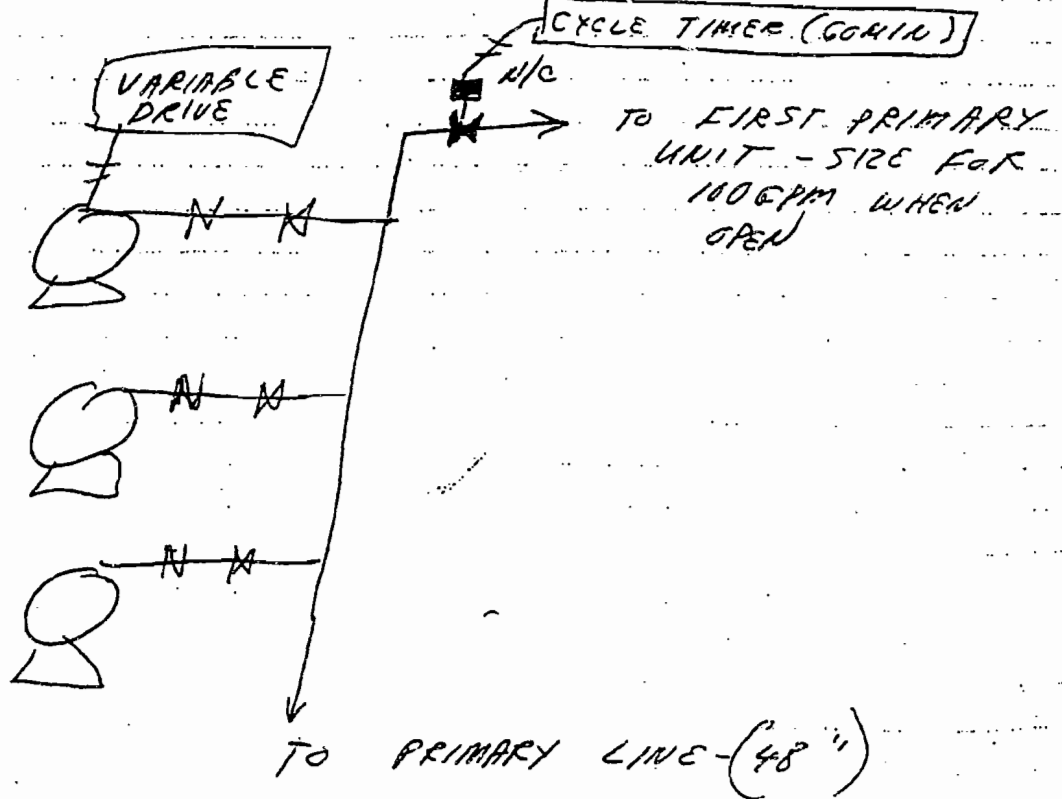 CYCLE TIMER (60MIN)
VARIABLE
DRIVE
N/C
TO FIRST PRIMARY
UNIT - SIZE FOR
100 GPM WHEN
OPEN
TO PRIMARY LINE - (48")